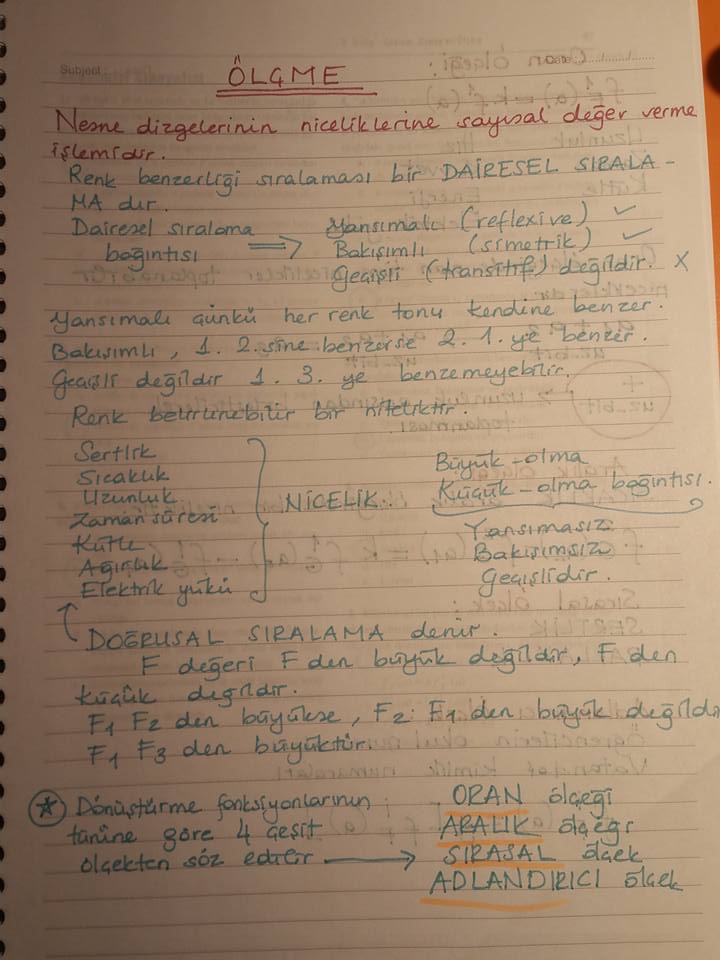 Subject :
Date : ..../..../........
ÖLÇME
Nesne dizgelerinin niceliklerine sayısal değer verme
işlemidir.
Renk benzerliği sıralaması bir DAİRESEL SIRALA-
MA dır.
Dairesel sıralama ⇒ Yansımalı (reflexive) ✓
bağıntısı Bakışımlı (simetrik) ✓
Geçişli (transitif) değildir. X
Yansımalı çünkü her renk tonu kendine benzer.
Bakışımlı, 1. 2.sine benzerse 2. 1.ye benzer.
Geçişli değildir 1. 3. ye benzemeyebilir.
Renk belirlenebilir bir niteliktir.
Sertlik
Sıcaklık
Uzunluk
Zaman süresi
Kütle
Ağırlık
Elektrik yükü
NİCELİK
Büyük-olma
Küçük-olma bağıntısı.
Yansımasız
Bakışımsız
Geçişlidir.
DOĞRUSAL SIRALAMA denir.
F değeri F den büyük değildir, F den
küçük değildir.
F1 F2 den büyükse, F2 F1 den büyük değildir
F1 F3 den büyüktür.
* Dönüştürme fonksiyonlarının ORAN ölçeği
türüne göre 4 çeşit ARALIK ölçeği
ölçekten söz edilir → SIRASAL ölçek
ADLANDIRICI ölçek